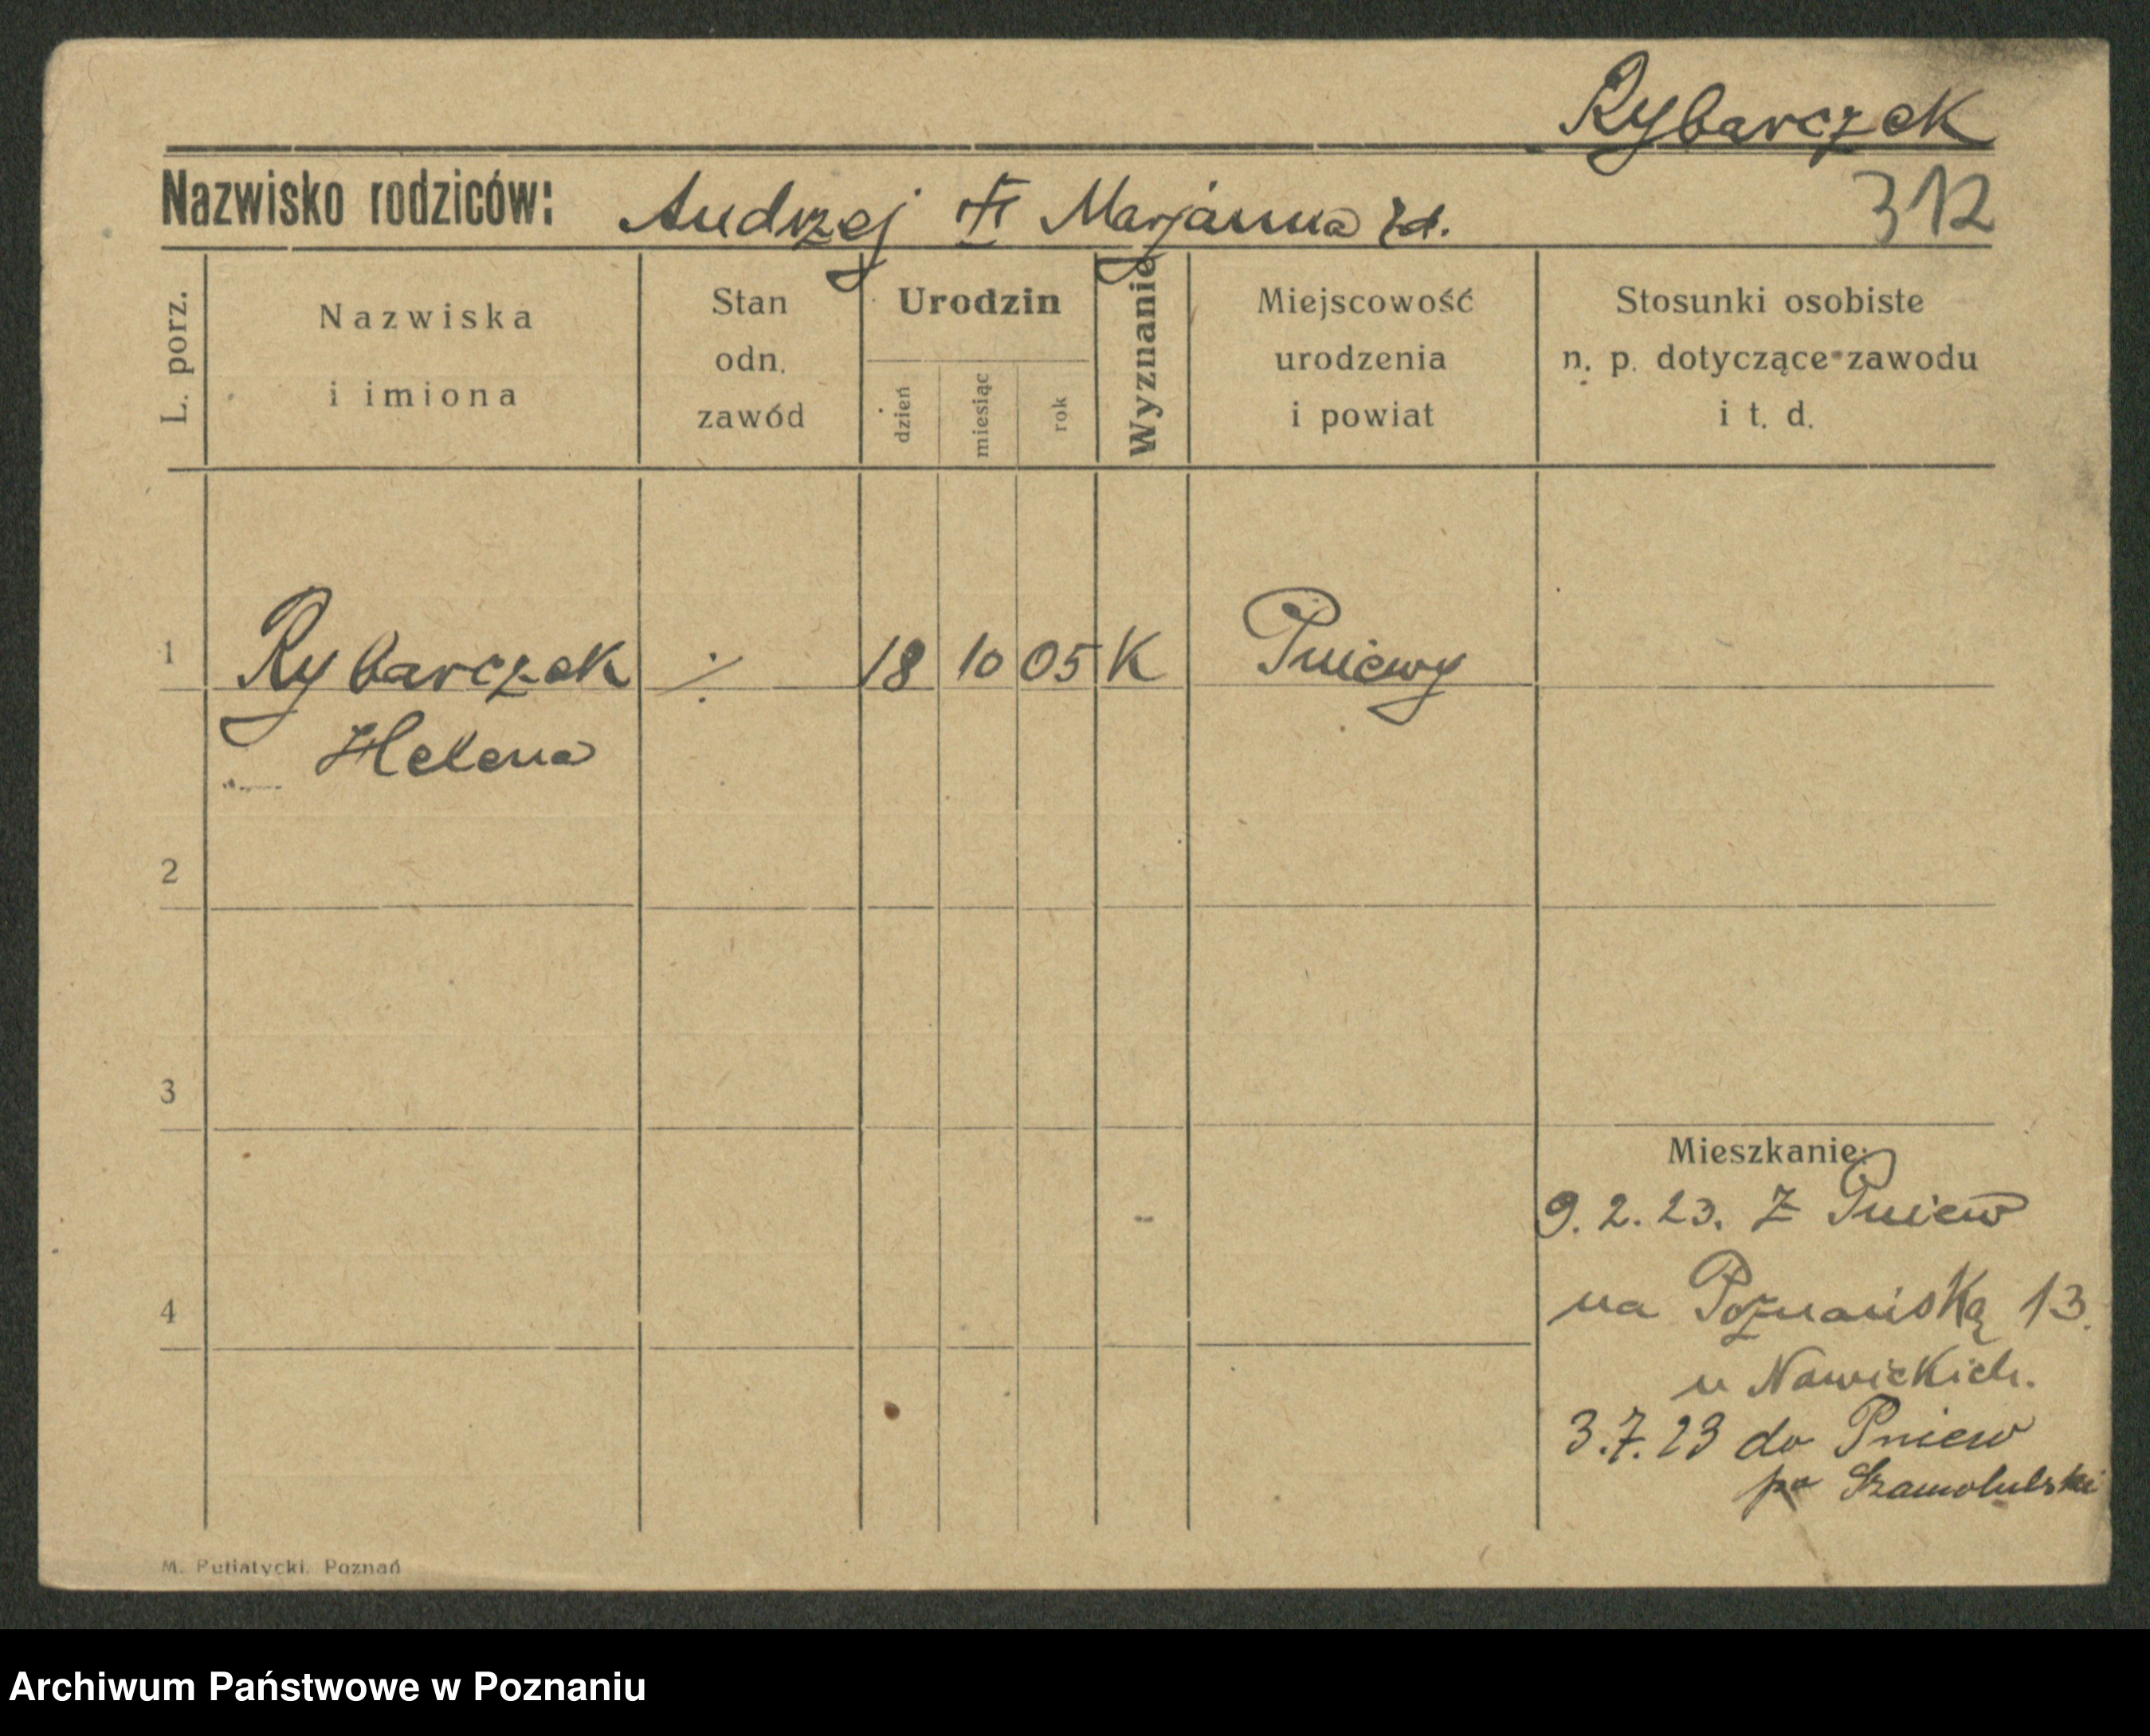 Rybarczek
Nazwisko rodziców: Andrzej † Marjanna
312
L. porz.
Nazwiska
i imiona
Stan
odn.
zawód
Urodzin
dzień
miesiąc
rok
Wyznanie
Miejscowość
urodzenia
i powiat
Stosunki osobiste
n. p. dotyczące zawodu
i t. d.
1 Rybarczek ./. 18 10 05 K Pniewy
Helena
2
3
Mieszkanie:
9. 2. 23. Z Pniew
4
na Poznańską 13.
u Nawickich.
3.7.23 do Pniew
Szamotulski
M. Putiatycki. Poznań
Archiwum Państwowe w Poznaniu